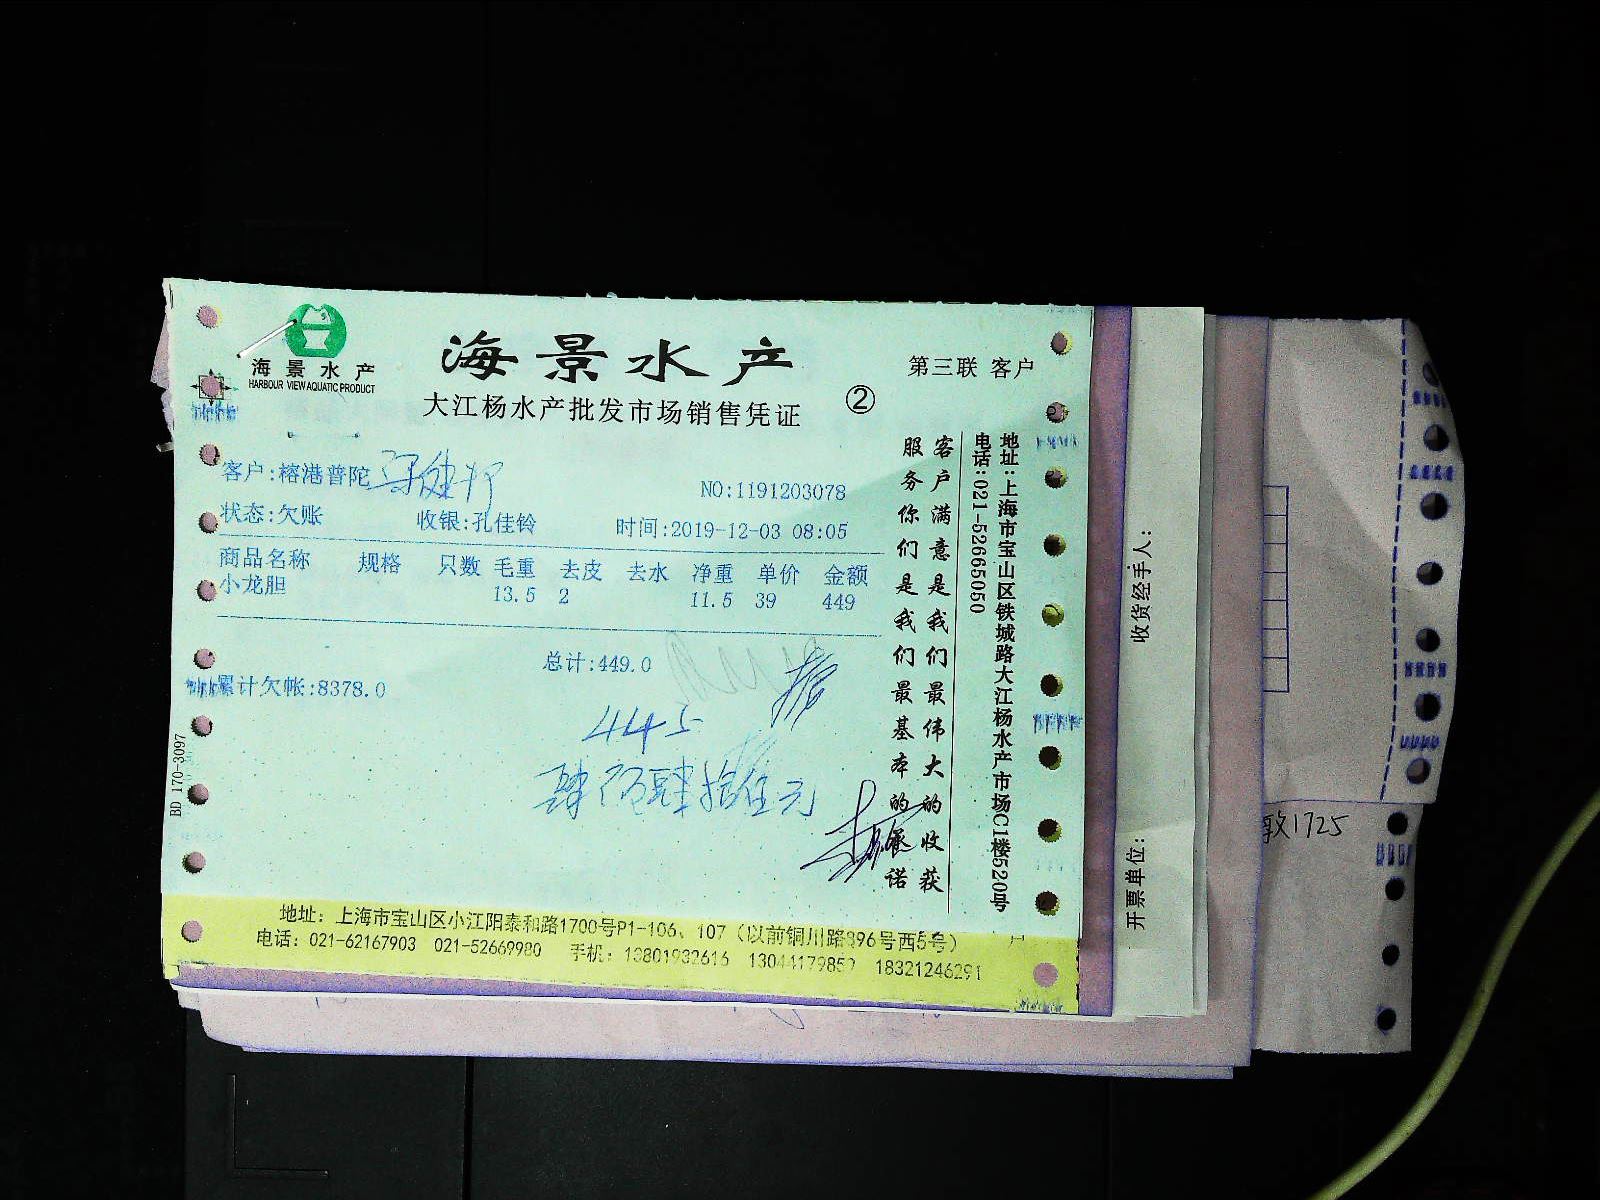 海景水产
HARBOUR VIEW AQUATIC PRODUCT
海景水产
大江杨水产批发市场销售凭证
②
第三联 客户
客户:榕港普陀
NO:1191203078
状态:欠账 收银:孔佳铃 时间:2019-12-03 08:05
商品名称 规格 只数 毛重 去皮 去水 净重 单价 金额
小龙胆 13.5 2 11.5 39 449
总计:449.0
累计欠帐:8378.0
445
肆佰肆拾伍元
客户满意是我们最伟大的收获
服务你们是我们最基本的承诺
地址:上海市宝山区铁城路大江杨水产市场C1楼520号
电话:021-52665050
BD 170-3097
地址: 上海市宝山区小江阳泰和路1700号P1-106、107（以前铜川路896号西5号）
电话: 021-62167903 021-52669980 手机: 13801932616 13044179852 18321246291
收货经手人:
开票单位:
1725